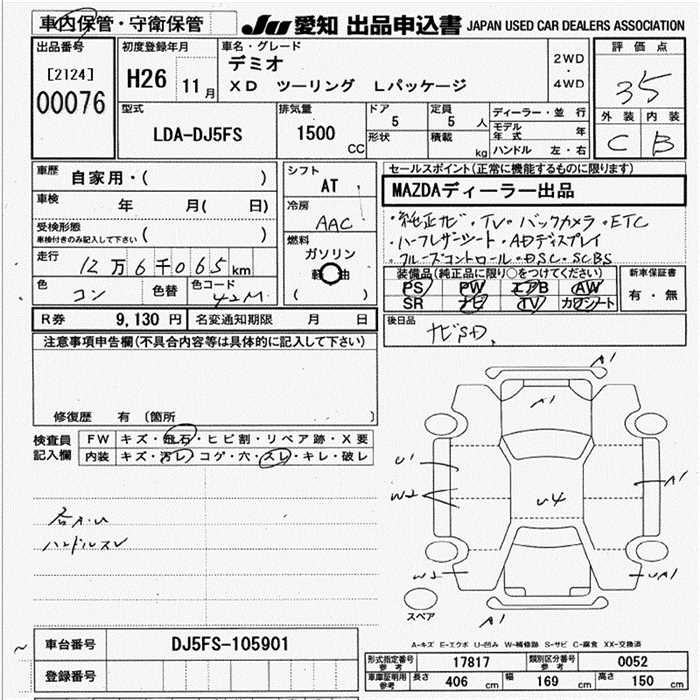 車内保管・守衛保管
JU 愛知 出品申込書 JAPAN USED CAR DEALERS ASSOCIATION
出品番号
[2124]
00076
初度登録年月
H26 11月
車名・グレード
デミオ
XD ツーリング Lパッケージ
2WD
・
4WD
評価点
35
外装 内装
C B
型式
LDA-DJ5FS
排気量
1500 CC
ドア
5
定員
5 人
形状
積載
kg
ディーラー・並行
モデル年式 年
ハンドル 左・右
車歴
自家用・( )
車検
年 月( 日)
受検形態
車検付きのみ記入して下さい ( )
走行
12万6千065km
色
コン
色替
色コード
42M
シフト
AT
冷房
AAC
燃料
ガソリン
軽油
( )
セールスポイント(正常に機能するものに限ります)
MAZDAディーラー出品
・純正ナビ・TV・バックカメラ・ETC
・ハーフレザーシート・ADディスプレイ
・クルーズコントロール・DSC・SCBS
装備品(純正品に限り○をつけてください)
PS PW エアB AW
SR ナビ TV カワシート
新車保証書
有・無
R券 9,130 円 名変通知期限 月 日
後日品
ナビSD.
注意事項申告欄(不具合内容等は具体的に記入して下さい)
修復歴 有 〔箇所 〕
検査員
記入欄
FW キズ・飛石・ヒビ割・リペア跡・X要
内装 キズ・汚レ・コゲ・穴・スレ・キレ・破レ
ハンドルスレ
A1
A1
U1
W2
U4
A1
W2
UA1
A1
スペア
A-キズ E-エクボ U-凹み W-補修跡 S-サビ C-腐食 XX-交換済
車台番号 DJ5FS-105901
登録番号
形式指定番号 参考 17817 類別区分番号 参考 0052
車庫証明用 参考 長さ 406 cm 幅 169 cm 高さ 150 cm